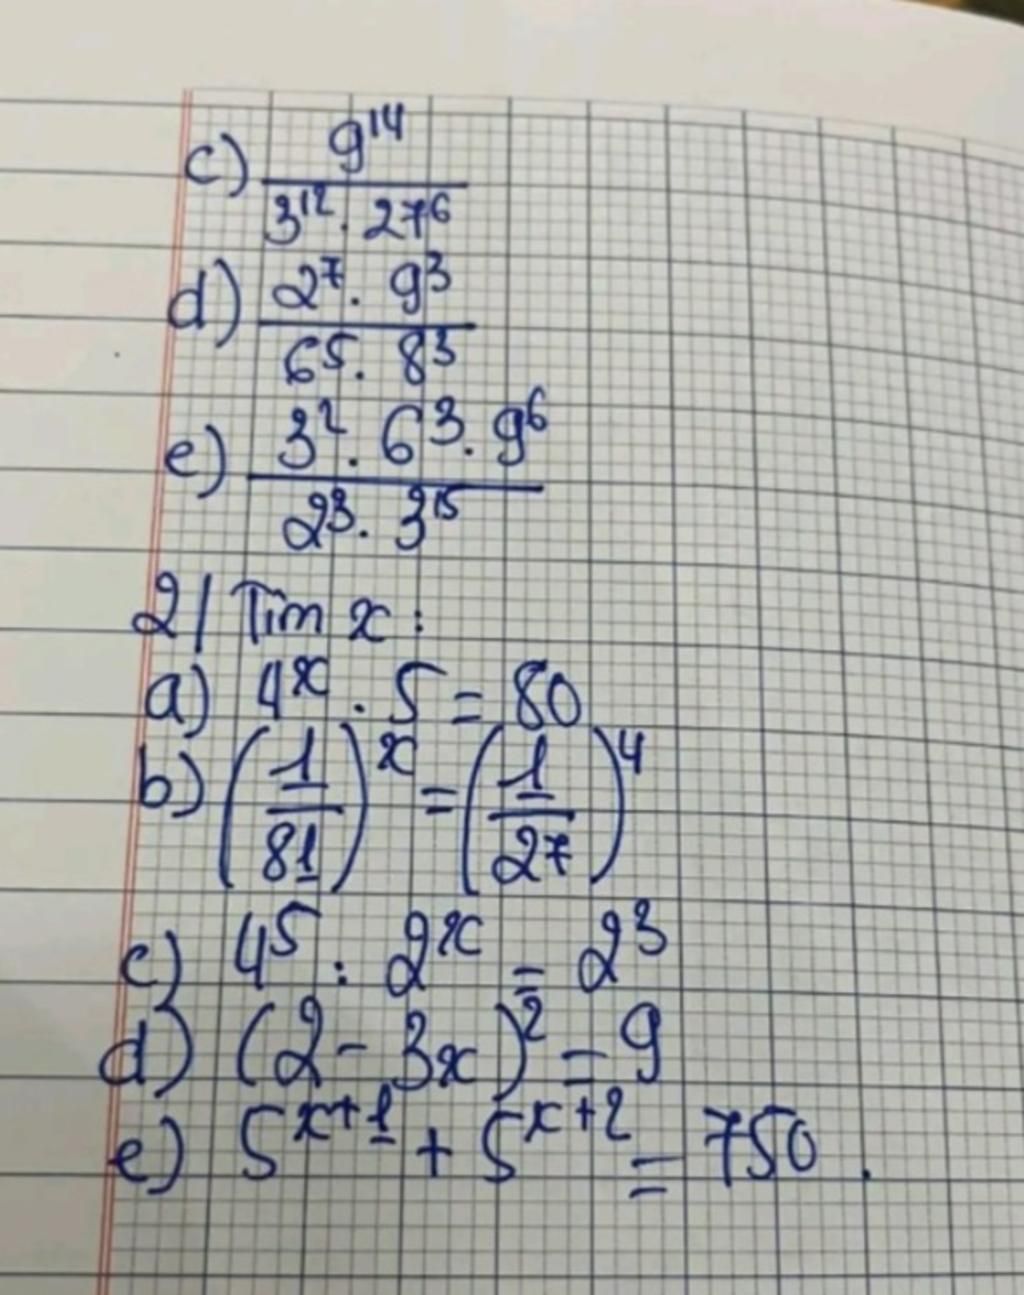 c) 9^14 / 3^12 . 27^6
d) 2^7 . 9^3 / 6^5 . 8^3
e) 3^2 . 6^3 . 9^6 / 2^3 . 3^15
2/ Tìm x :
a) 4^x . 5 = 80
b) (1/81)^x = (1/27)^4
c) 4^5 : 2^x = 2^3
d) (2 - 3x)^2 = 9
e) 5^x+1 + 5^x+2 = 750 .